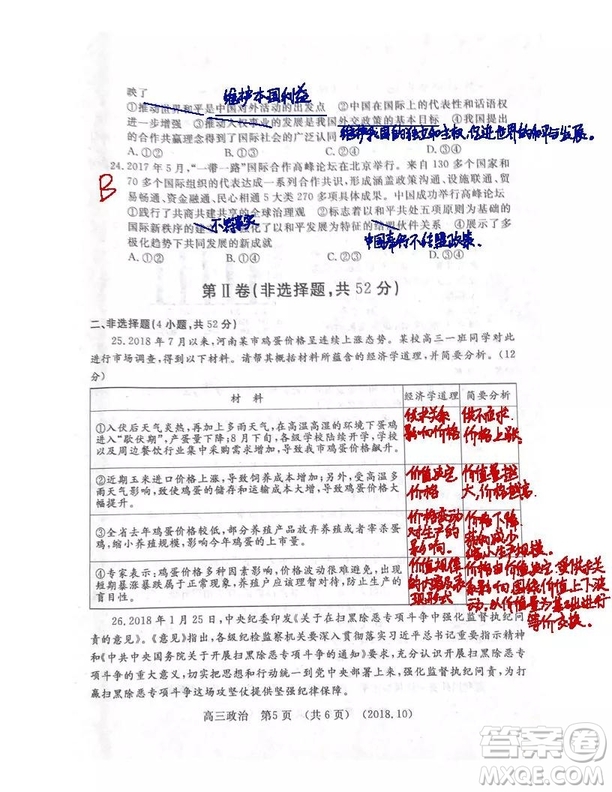 映了
维护本国利益
①推动世界和平是中国对外活动的出发点 ②中国在国际上的代表性和话语权
进一步增强 ③推动人权事业的发展是我国外交政策的基本目标 ④我国提出
的合作共赢理念得到了国际社会的广泛认同
维护我国的独立和主权,促进世界的和平与发展。
24.2017年5月,“一带一路”国际合作高峰论坛在北京举行。来自130多个国家和
70多个国际组织的代表达成一系列合作共识,形成涵盖政策沟通、设施联通、贸
易畅通、资金融通、民心相通5大类270多项成果。中国成功举行高峰论坛
B
①践行了共商共建共享的全球治理观 ②标志着以和平共处五项原则为基础的
国际新秩序的
以和平发展为特征的
伙伴关系 ④展示了多
极化趋势下共同发展的新成就
中国奉行不结盟政策。
A.①② B.①④ C.②③ D.③④
第Ⅱ卷(非选择题,共52分)
二、非选择题(4小题,共52分)
25.2018年7月以来,河南某市鸡蛋价格呈连续上涨态势。某校高三一班同学对此
进行市场调查,得到以下材料。请帮其概括材料所蕴含的经济学道理,并简要分析。(12
分)
材 料 经济学道理 简要分析
①入伏后天气炎热,再加上多雨天气,在高温高湿的环境下蛋鸡
进入“歇伏期”,产蛋量下降;8月份,各级学校陆续开学,学校
以及周边餐饮行业集中采购需求增加,导致我市鸡蛋价格飙升。
供求关系
影响价格
供不应求,
价格上涨
②近期玉米进口价格上涨,导致饲养成本增加;另外,受高温多
雨天气影响,鸡蛋的储存和运输成本大大增加,导致鸡蛋价格大
幅提升。
价值决定
价格
价值量越
大,价格越高
③全省去年鸡蛋价格较低,部分养殖产品放弃养殖或者宰杀蛋
鸡,缩小养殖规模,影响了今年鸡蛋的上市量。
价格变动
对生产的
影响。
价格下降
④专家表示:鸡蛋价格会有所回落,价格波动很难避免,出现短
期暴涨暴跌属于正常现象,养殖户应该理智对待,防止生产的
盲目性。
价值规律
的内容及表
现形式
价格由价值决定,受供求关
系影响,围绕价值上下波
动,以价值量为基础进行
等价交换。
26.2018年1月25日,中央纪委印发《关于在扫黑除恶专项斗争中强化监督执纪问
责的意见》。《意见》指出,各级纪检监察机关要深入贯彻落实习近平总书记重要指示精神
和《中共中央国务院关于开展扫黑除恶专项斗争的通知》要求,充分认识开展扫黑除恶专项斗争
的重大意义,切实把思想和行动统一到党中央部署上来,强化监督执纪问责,为打
赢扫黑除恶专项斗争这场攻坚仗提供坚强纪律保障。
高三政治 第5页 (共6页) (2018.10)
答案圈
MXQE.COM